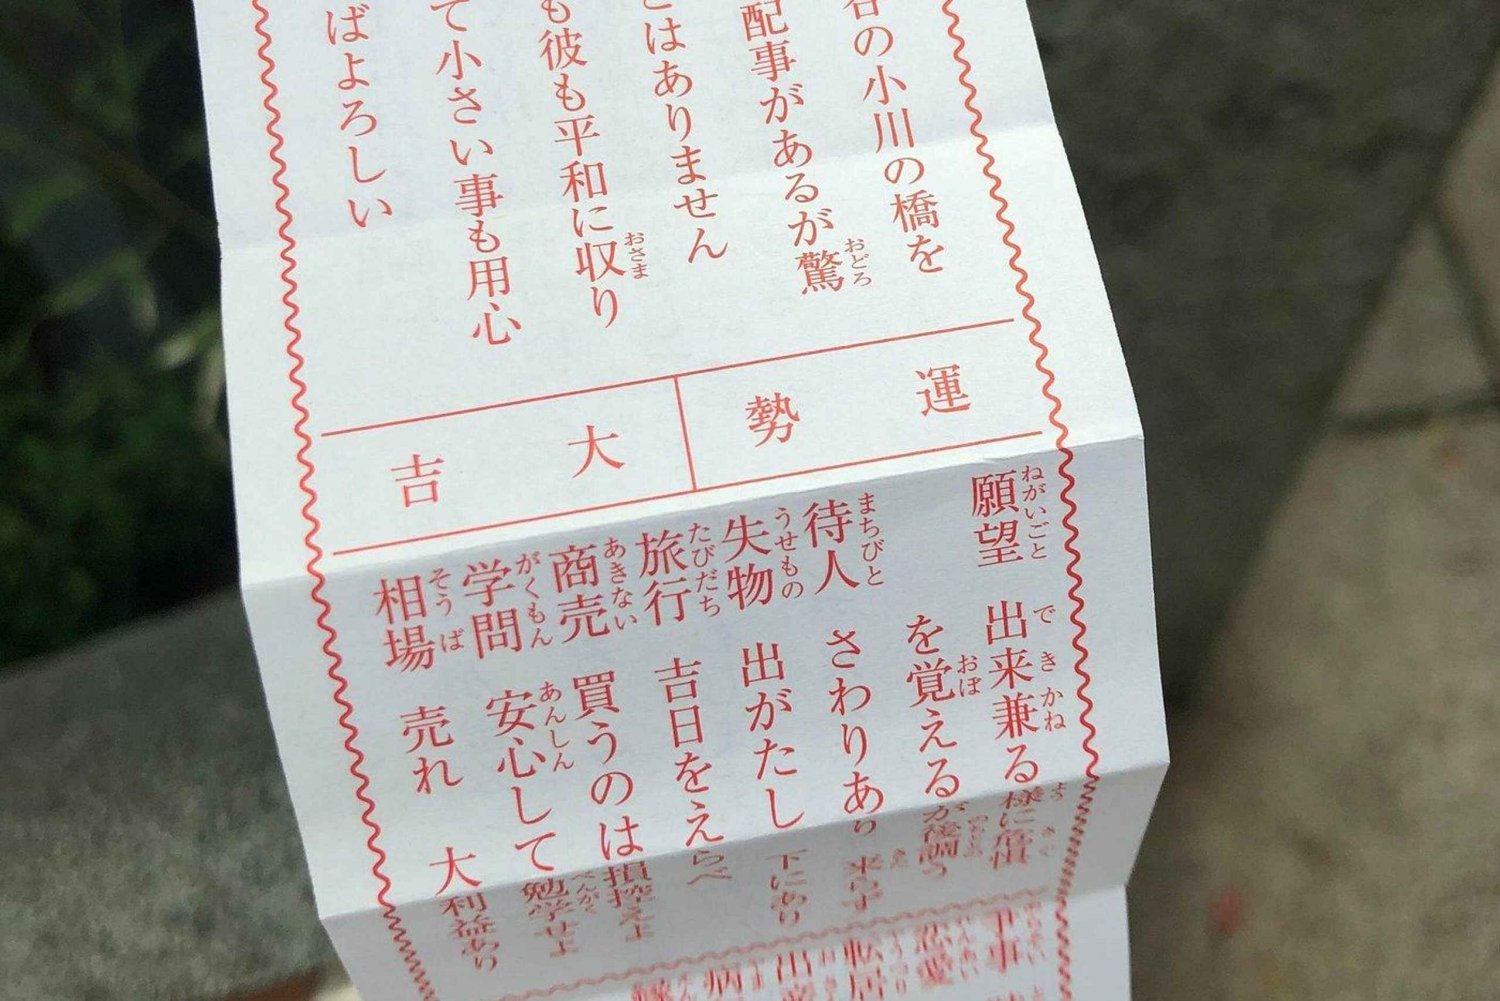 の小川の橋を
配事があるが驚
はありません
も彼も平和に収り
て小さい事も用心
ばよろしい
運勢 大吉
願望 出来兼る様に危惧
を覚えるが後調う
待人 さわりあり来らず
失物 出がたし下にあり
旅行 吉日をえらべ
商売 買うのは損控えよ
学問 安心して勉学せよ
相場 売れ 大利益あり
争事
恋愛
転居
出産
病